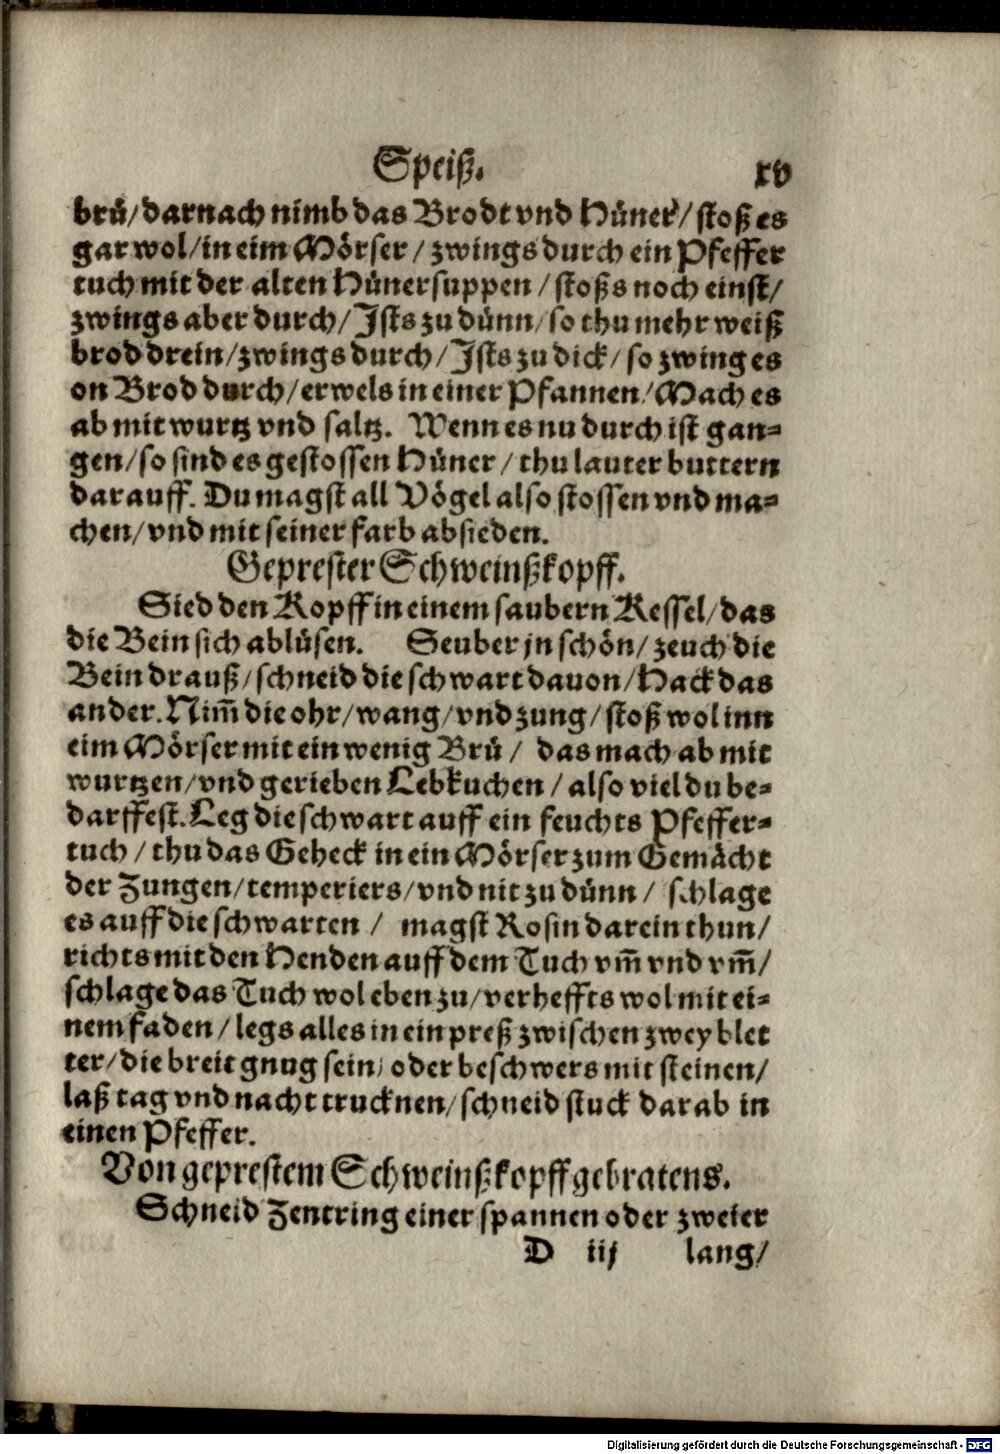 Speiß. xv
brů/darnach nimb das Brodt vnd Hüner/stoß es
gar wol/in eim Mörser/zwings durch ein Pfeffer
tuch mit der alten Hünersuppen/stoßs noch einst/
zwings aber durch/Ists zu dünn/so thu mehr weiß
brod drein/zwings durch/Ists zu dick/so zwing es
on Brod durch/erwels in einer Pfannen/Mach es
ab mit wurtz vnd saltz. Wenn es nu durch ist gan-
gen/so sind es gestossen Hüner/thu lauter buttern
darauff. Du magst all Vögel also stossen vnd ma-
chen/vnd mit seiner farb absieden.
Geprester Schweinßkopff.
Sied den Kopff in einem saubern Kessel/das
die Bein sich ablüsen. Seuber jn schön/zeuch die
Bein drauß/schneid die schwart dauon/Hack das
ander. Nim̄ die ohr/wang/vnd zung/stoß wol inn
eim Mörser mit ein wenig Brů/ das mach ab mit
wurtzen/vnd gerieben Lebkuchen/also viel du be-
darffest. Leg die schwart auff ein feuchts Pfeffer-
tuch/thu das Geheck in ein Mörser zum Gemächt
der Zungen/temperiers/vnd nit zu dünn/ schlage
es auff die schwarten/ magst Rosin darein thun/
richts mit den Henden auff dem Tuch vm̄ vnd vm̄/
schlage das Tuch wol eben zu/verheffts wol mit ei-
nem faden/legs alles in ein preß zwischen zwey blet
ter/die breit gnug sein/oder beschwers mit steinen/
laß tag vnd nacht trucknen/schneid stuck darab in
einen Pfeffer.
Von geprestem Schweinßkopff gebratens.
Schneid Zentring einer spannen oder zweier
D iij lang/
Digitalisierung gefördert durch die Deutsche Forschungsgemeinschaft - DFG